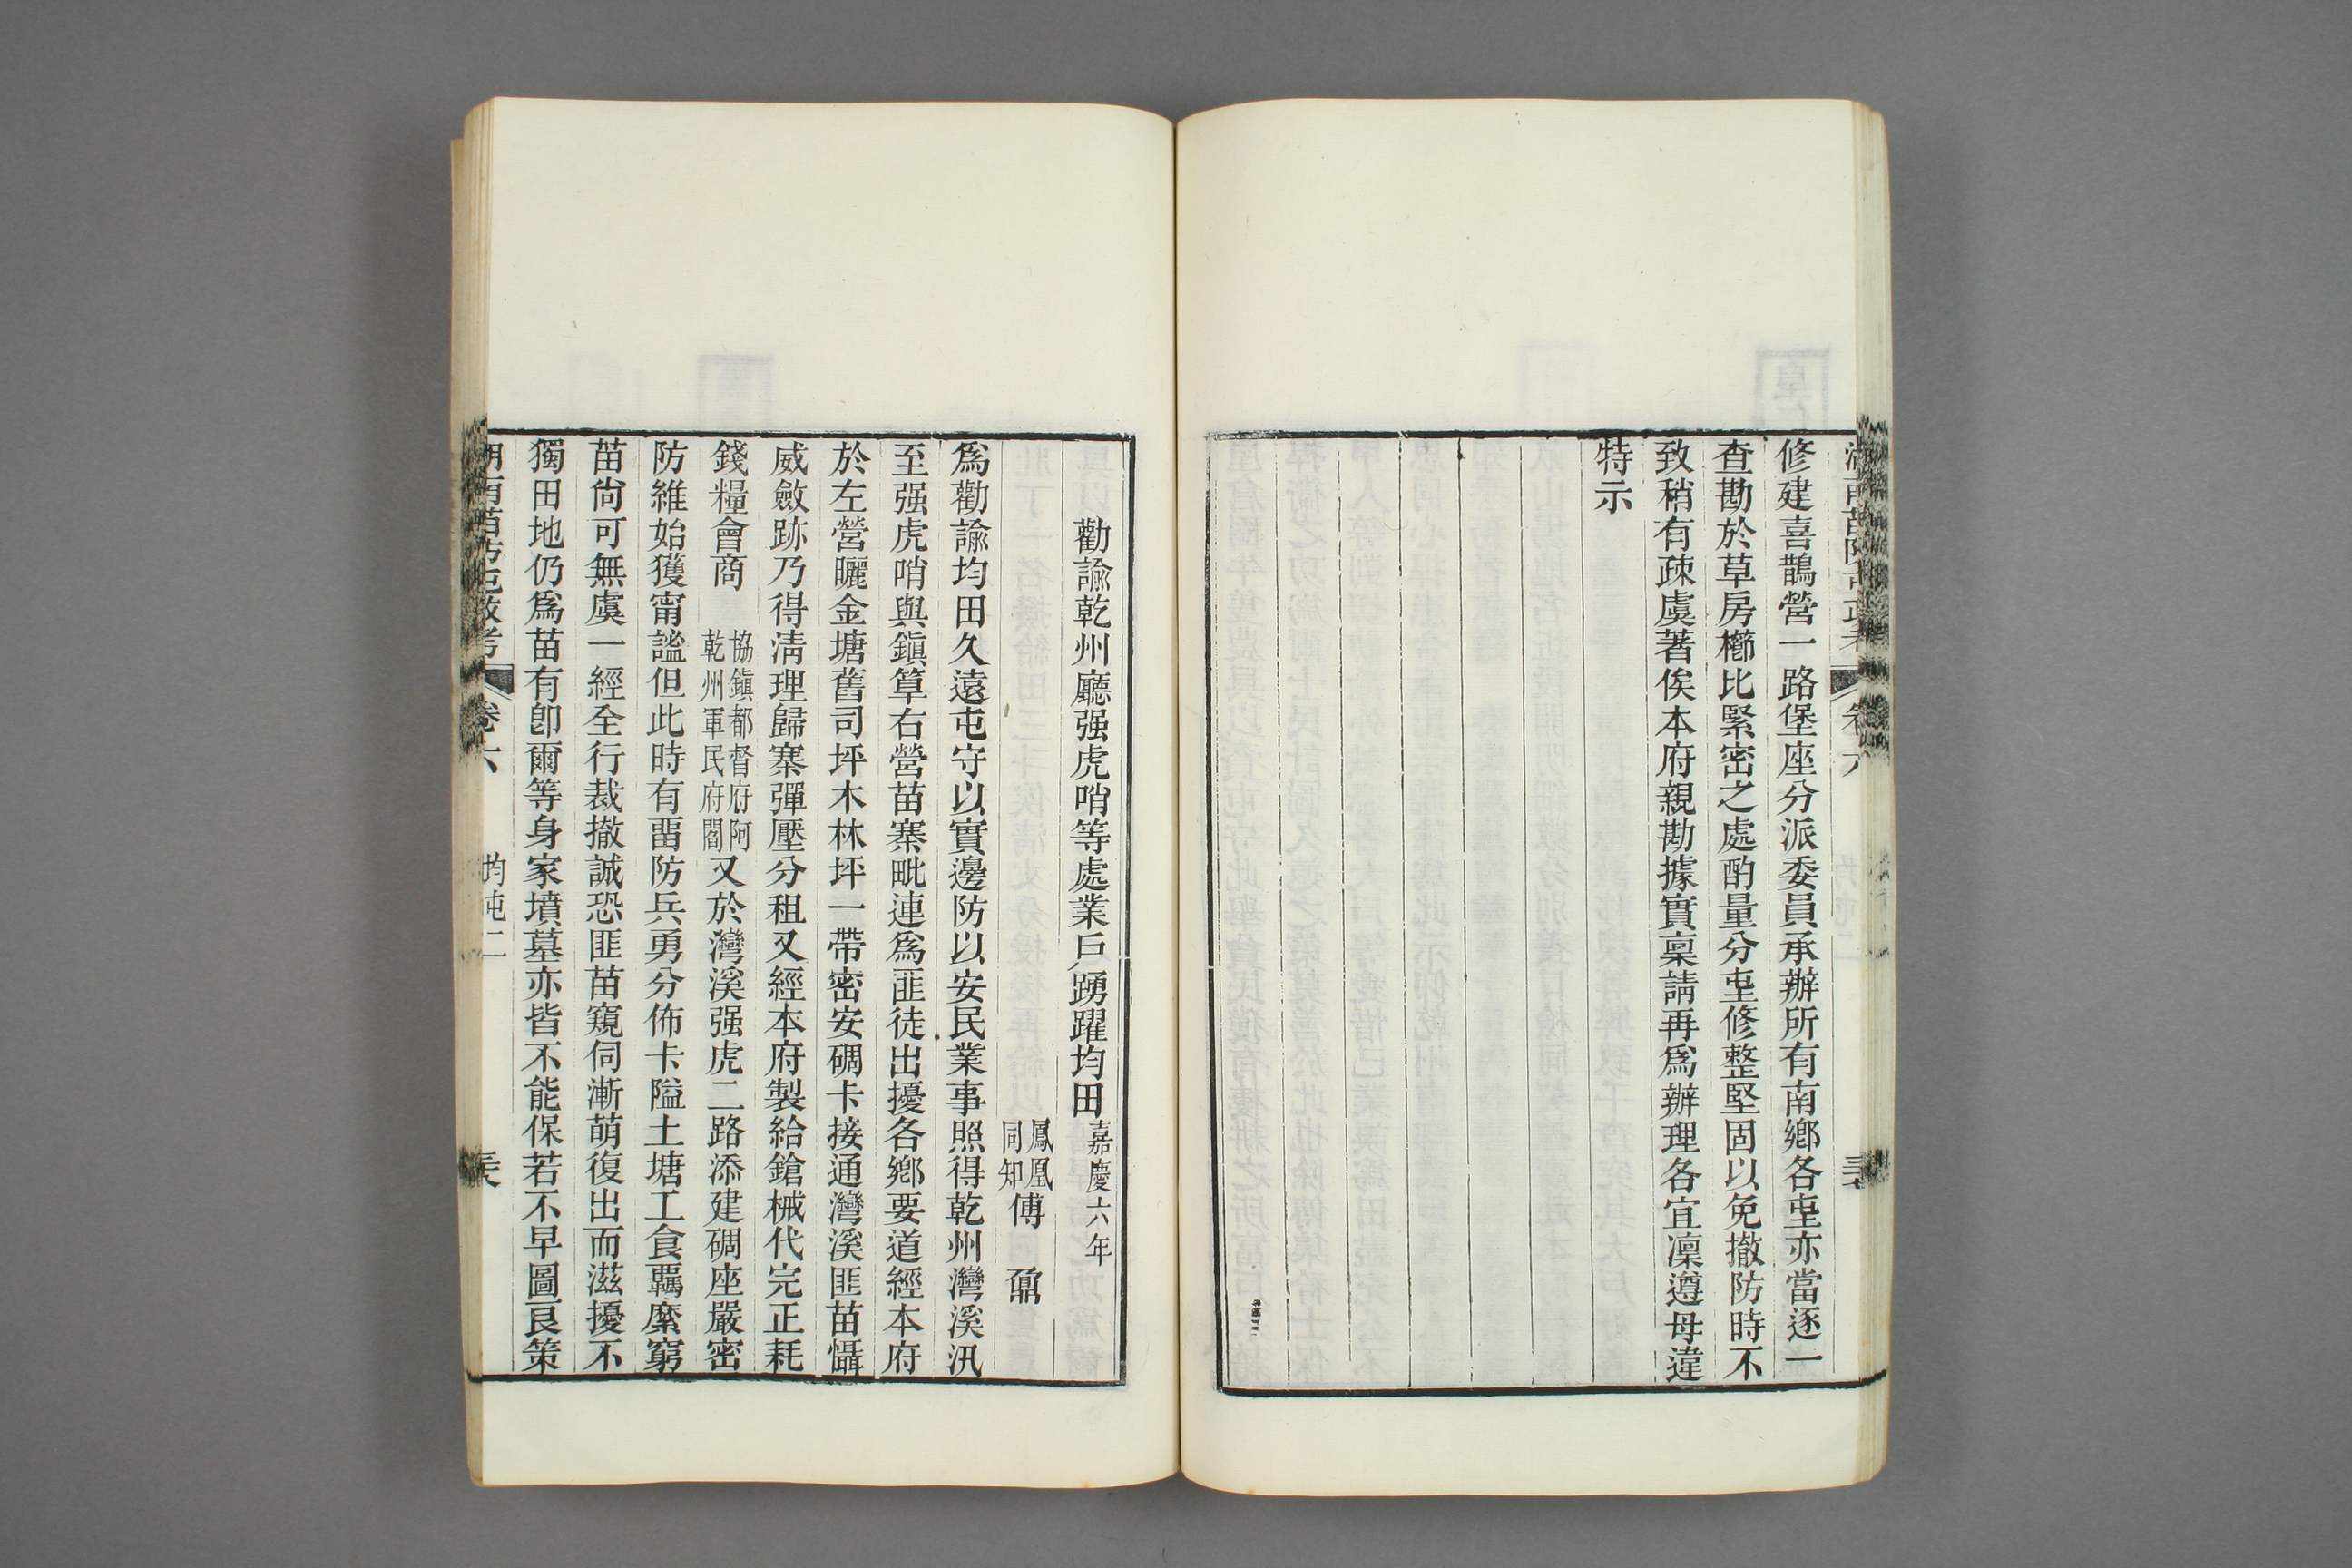 修建喜鵲營一路堡座分派委員承辦所有南鄉各𡉏亦當逐一
查勘於草房櫛比緊密之處酌量分𡉏修整堅固以免撤防時不
致稍有疎虞著俟本府親勘據實稟請再爲辦理各宜凜遵毋違
特示
勸諭乾州廳强虎哨等處業戶踴躍均田 嘉慶六年
鳳凰同知 傅 鼐
爲勸諭均田久遠屯守以實邊防以安民業事照得乾州灣溪汛
至强虎哨與鎭筸右營苗寨毗連爲匪徒出擾各鄉要道經本府
於左營曬金塘舊司坪木林坪一帶密安碉卡接通灣溪匪苗懾
威斂跡乃得清理歸寨彈壓分租又經本府製給鎗械代完正耗
錢糧會商 協鎭都督府阿 乾州軍民府閻 又於灣溪强虎二路添建碉座嚴密
防維始獲甯謐但此時有畱防兵勇分佈卡隘土塘工食羈縻窮
苗尙可無虞一經全行裁撤誠恐匪苗窺伺漸萌復出而滋擾不
獨田地仍爲苗有卽爾等身家墳墓亦皆不能保若不早圖良策
湖南苗防屯政考 卷六 均屯二